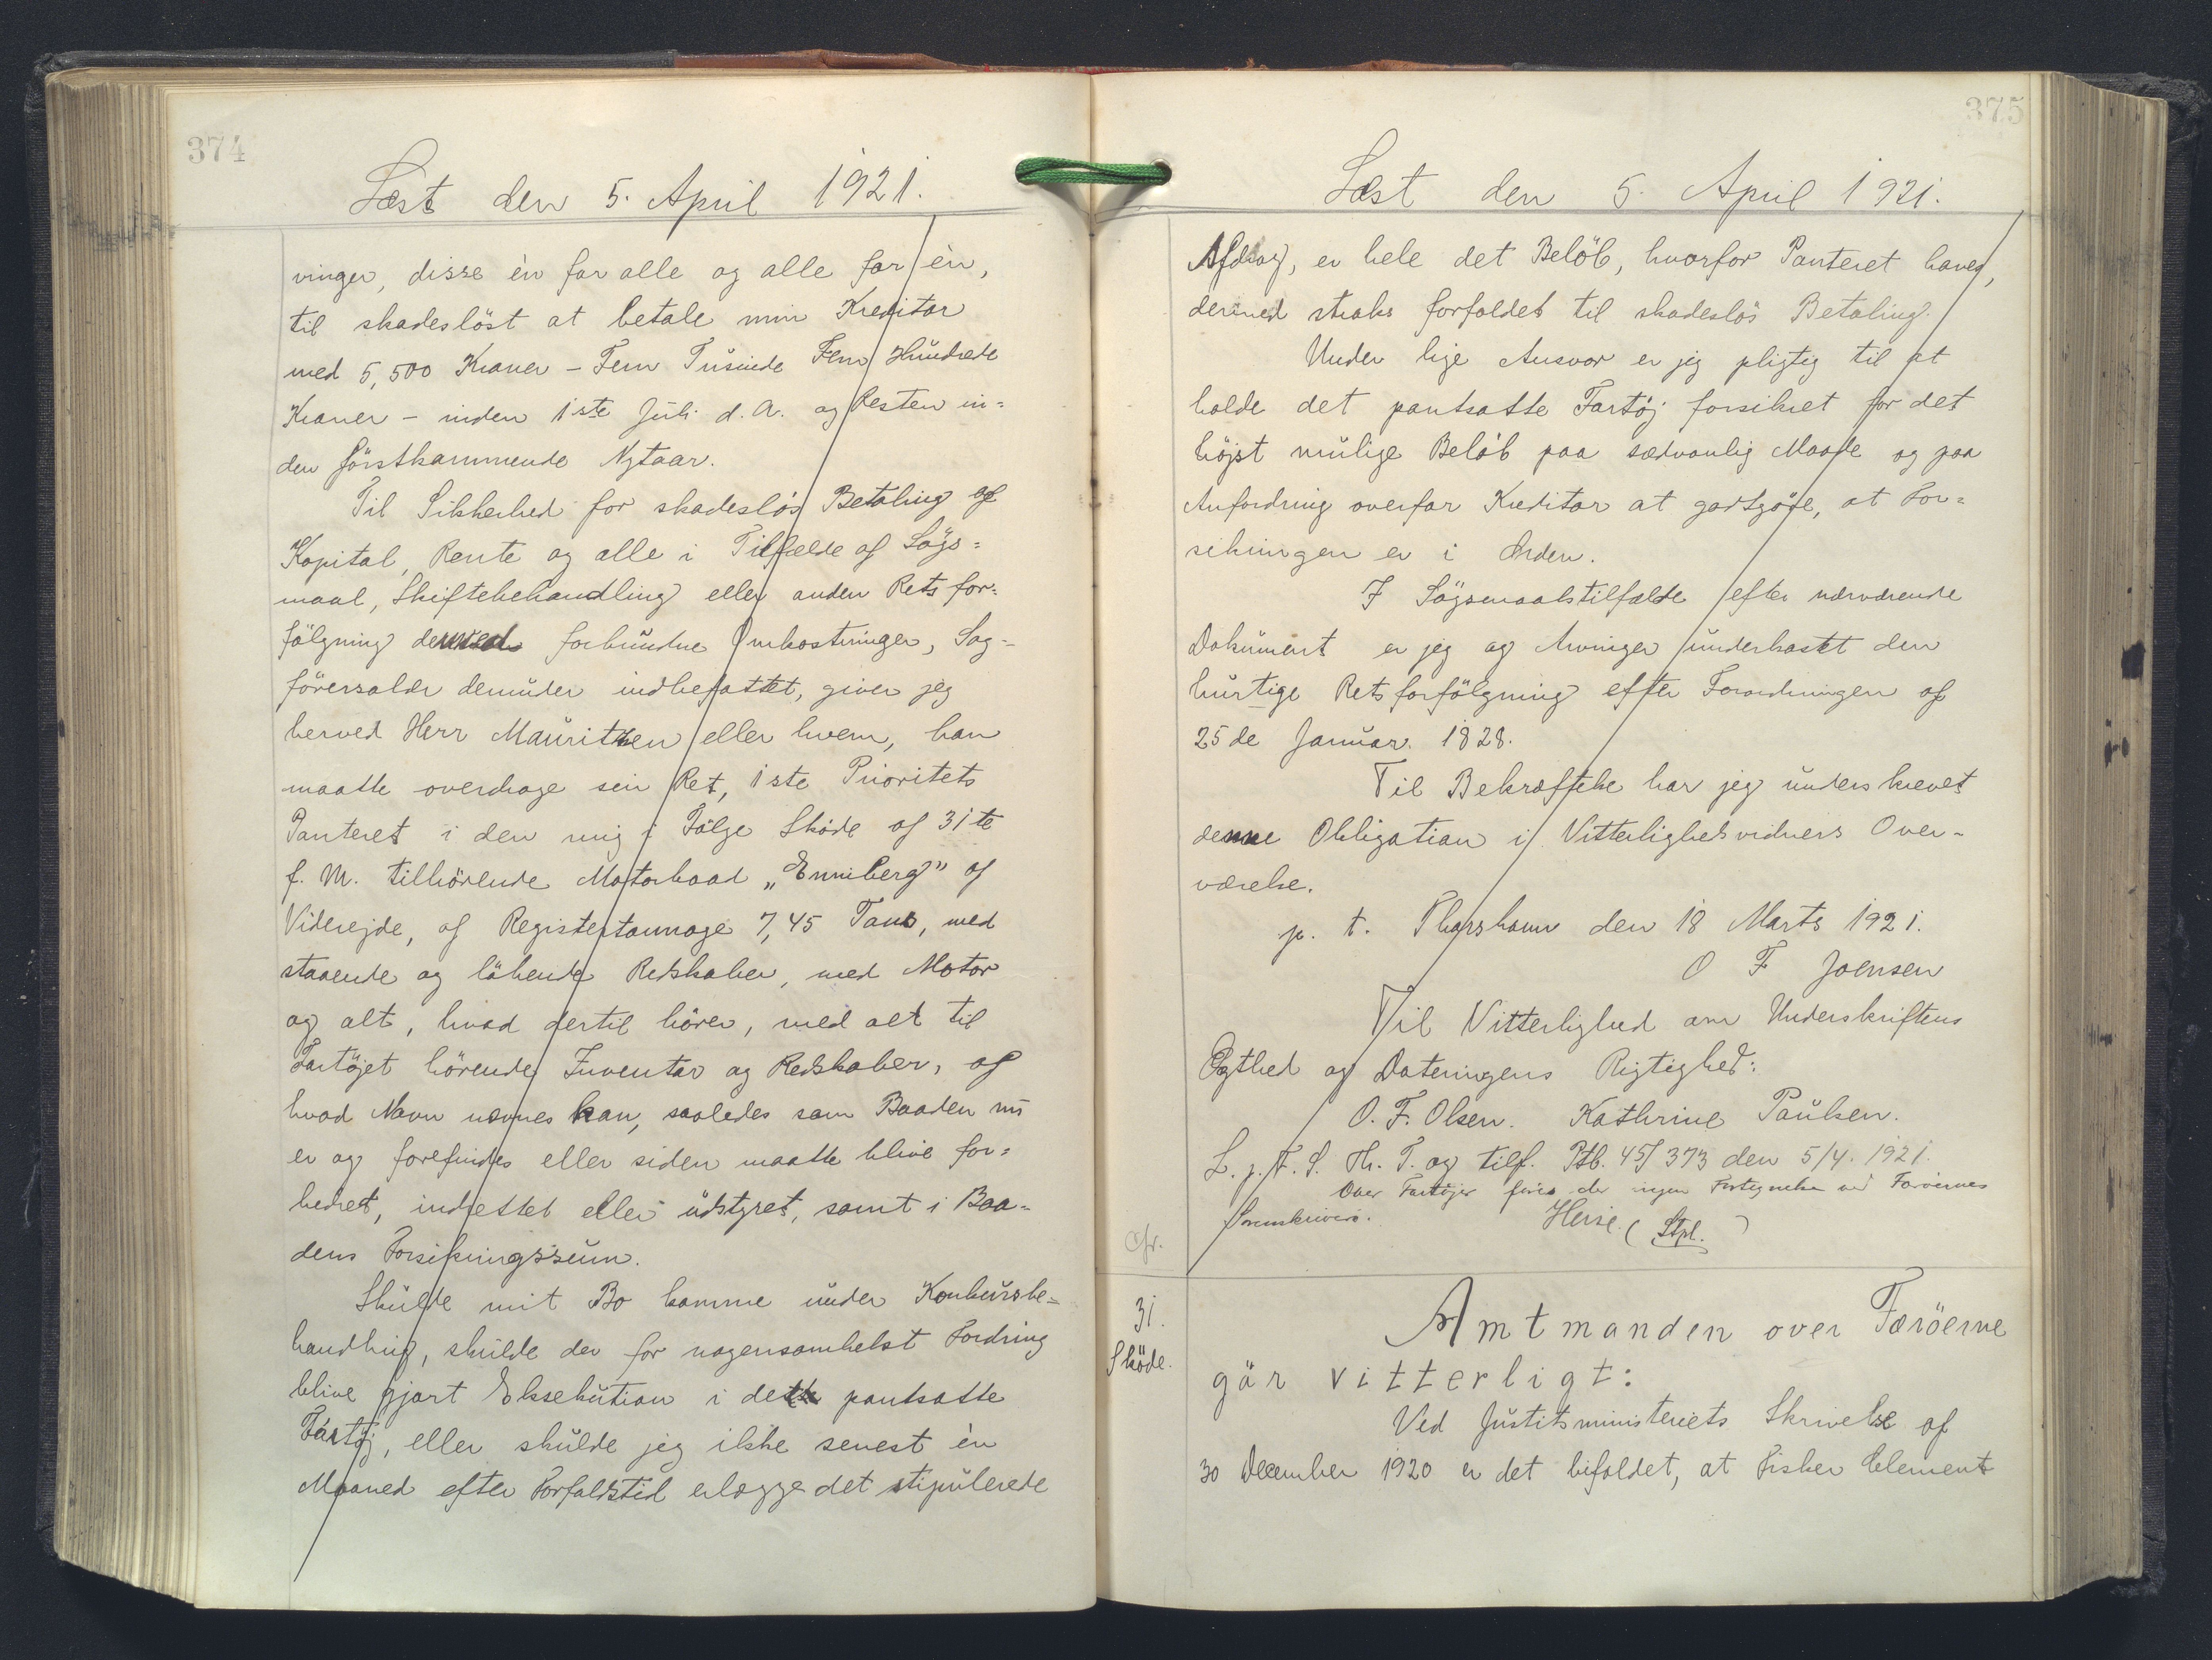 374
Læst den 5. April 1921.
vinger, disse èn for alle og alle for èn,
til skadesløst at betale min Kreditor
med 5,500 Kroner - Fem Tusinde Fem Hundrede
Kroner - inden 1ste Juli d. A. og Resten in=
den förstkommende Nytaar.
Til Sikkerhed for skadeslös Betaling af
Kapital, Rente og alle i Tilfælde af Sögs=
maal, Skiftebehandling eller anden Rets for=
fölgning dermed forbundne Omkostninger, Sag=
förersalær derunder indbefattet, giver jeg
herved Herr Mauritzen eller hvem, han
maatte overdrage sin Ret, 1ste Prioritets
Panteret i den mig i Fölge Sköde af 31te
f. M. tilhörende Motorbaad „Enniberg" af
Viderejde, af Registertonnage 7,45 Tons, med
staaende og löbende Redskaber, med Motor
og alt, hvad dertil hörer, med alt til
Fartöjet hörende Inventar og Redskaber, af
hvad Navn nævnes kan, saaledes som Baaden nu
er og forefindes eller siden maatte blive for=
bedret, indrettet eller udstyret, samt i Baa=
dens Forsikringssum.
Skulde mit Bo komme under Konkursbe=
handling, skulde der for nogensomhelst Fordring
blive gjort Eksekution i dette pantsatte
Fartöj, eller skulde jeg ikke senest èn
Maaned efter Forfaldstid erlægge det stipulerede
375
Læst den 5. April 1921.
Afdrag, er hele det Belöb, hvorfor Panteret haves,
dermed straks forfaldet til skadeslös Betaling.
Under lige Ansvar er jeg pligtig til at
holde det pantsatte Fartöj forsikret for det
höjst mulige Belöb paa sædvanlig Maade og paa
Anfordring overfor Kreditor at godtgöre, at For=
sikringen er i Orden.
I Sögsmaalstilfælde efter nærværende
Dokument er jeg og Arvinger underkastet den
hurtige Retsforfölgning efter Forordningen af
25de Januar 1828.
Til Bekræftelse har jeg underskrevet
denne Obligation i Vitterlighedsvidners Over=
værelse.
p. t. Thorshavn den 18 Marts 1921.
O F Joensen
Til Vitterlighed om Underskriftens
Ægthed og Dateringens Rigtighed:
O. F. Olsen. Kathrine Paulsen.
L. p. F. S. Th. T. og tilf. Ptb. 45/373 den 5/4. 1921.
Over Fartöjer föres der ingen Fortegnelse ved Færöernes
Sorenskriveri. Heise. (Stpl.)
Cfr.
31.
Sköde.
Amtmanden over Færöerne
gör vitterligt:
Ved Justitsministeriets Skrivelse af
30 December 1920 er det bifaldet, at Fisker Clement